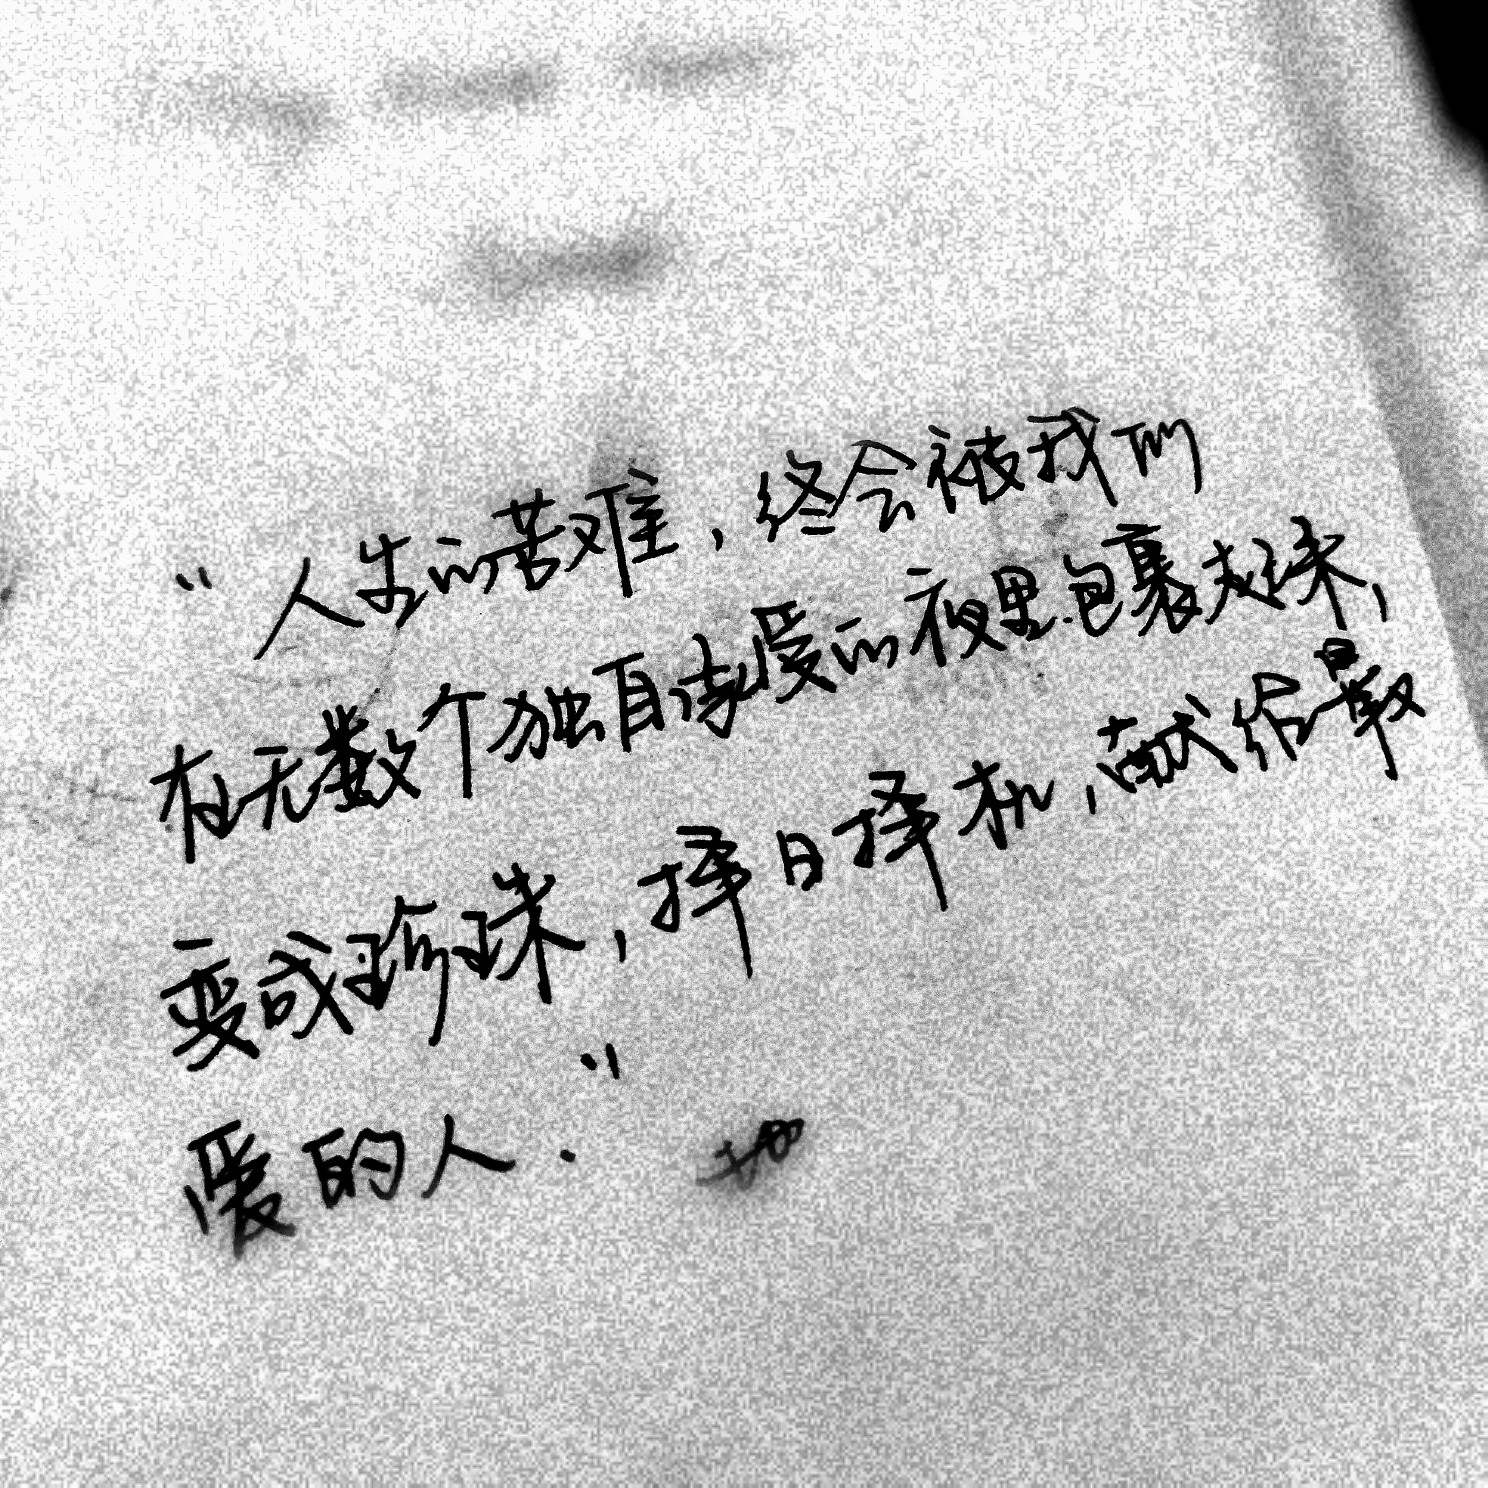 “人生的苦难，终会被我们
在无数个独自爱的夜里包裹起来，
变成珍珠，择日择机，献给最
爱的人.”